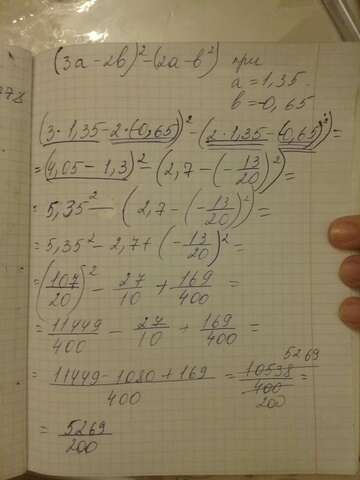 (3a-2b)²-(2a-b²) при
a=1,35
b=-0,65
(3·1,35-2·(-0,65))²-(2·1,35-(-0,65)²)=
=(4,05-1,3)²-(2,7-(-13/20)²)=
=5,35²-(2,7-(-13/20)²)=
=5,35²-2,7+(-13/20)²=
=(107/20)²-27/10+169/400=
=11449/400-27/10+169/400=
=(11449-1080+169)/400=10538/400=
5269
200
=5269/200